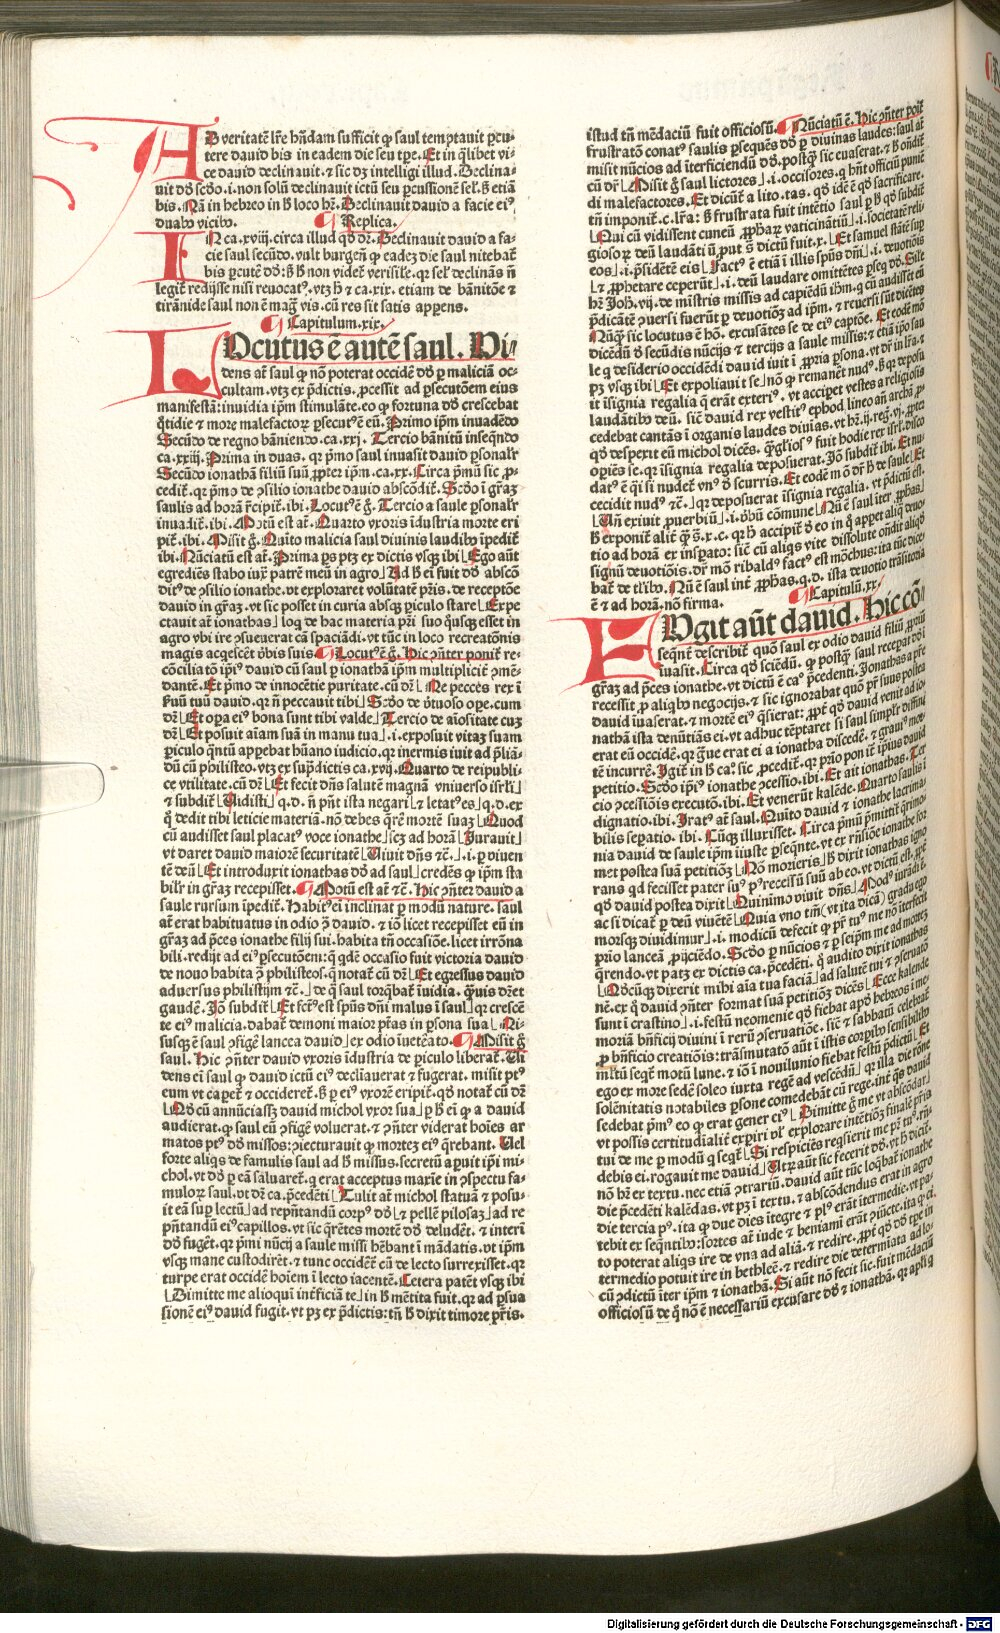 AD veritatē lr̄e hn̄dam sufficit ꝙ saul temptauit ꝑcu-
tere dauid bis in eadem die seu tpe. Et in q̄libet vi-
ce dauid declinauit. ⁊ sic dz intelligi illud. Declina-
uit dō scd̄o. i. non solū declinauit ictū seu ꝑcussionē sel'. ß etiā
bis. Nā in hebreo in ß loco hr̄. Declinauit dauid a facie ei'
duab9 vicib9. Replica.
IN ca. xviij. circa illud qd̄ dr̄. Declinauit dauid a fa-
cie saul secūdo. vult burgen̄ ꝙ eadez die saul nitebat̄
bis ꝑcutē dō: ß ß non videt̄ verisile. qz sel' declinās n̄
legit̄ redijsse nisi reuocat9. vtz h̄ ⁊ ca. xix. etiam de bānitōe ⁊
tirānide saul non ē maḡ vis. cū res sit satis appens.
Capitulum. xix.
LOcutus ē autē saul. Vi-
dens at̄ saul ꝙ nō poterat occidē dō ꝑ maliciā oc-
cultam. vtz ex p̄dictis. ꝓcessit ad ꝑsecutōem eius
manifestā: inuidia ip̄m stimulāte. eo ꝙ fortuna dō crescebat
q̄tidie ⁊ more malefactoꝝ ꝑsecut9 ē eū. Primo ip̄m inuadēdo
Secūdo de regno bānienō. ca. xxi. Tercio bānitū inseqn̄do
ca. xxiij. Prima in duas. qz p̄mo saul inuasit dauid ꝑsonalr̄
Secūdo ionathā filiū suū ꝓpter ip̄m. ca. xx. Circa p̄mū sic ꝓ-
cedit̄. qz p̄mo de ꝯsilio ionathe dauid abscōdit̄. Scd̄o ī gr̄az
saulis ad horā r̄cipit̄. ibi. Locut9 ē g̈. Tercio a saule ꝑsonalr̄
inuadit̄. ibi. Motū est at̄. Quarto vxoris īdustria morte eri
pit̄. ibi. Misit g̈. Quīto malicia saul diuinis laudib9 īpedit̄
ibi. Nūciatū est at̄. Prima ps ptz ex dictis vsqz ibi Ego aūt
egrediēs stabo iux̄ patrē meū in agro Ad ß ei fuit dō abscō
dit9 de ꝯsilio ionathe. vt exploraret volūtatē pr̄is. de receptōe
dauid in gr̄az. vt sic posset in curia absqz ꝑiculo stare Expe
ctauit at̄ ionathas loq̄ de hac materia pr̄i suo qūsqz esset in
agro vbi ire ꝯsueuerat cā spaciādi. vt tūc in loco recreatōnis
magis acqescēt v̄bis suis Locut9 ē g̈. Hic ꝯn̄ter ponit̄ re-
cōciliatō ipi9 dauid cū saul ꝑ ionathā ip̄m multiplicit̄ ꝯmē-
dantē. Et p̄mo de innocētie puritate. cū dr̄ Ne peccēs rex ī
ẜuū tuū dauid. qz n̄ peccauit tibi Scd̄o de v̄tuoso oꝑe. cum
dr̄ Et oꝑa ei9 bona sunt tibi valde Tercio de aīositate cuz
dr̄ Et posuit aīam suā in manu tua. i. exposuit vitaz suam
ꝑiculo qn̄tū appebat hūano iudicio. qz inermis iuit ad p̄liā-
dū cū philisteo. vtz ex sup̄dictis ca. xvij. Quarto de reipubli-
ce vtilitate. cū dr̄ Et fecit dn̄s salutē magnā vniuerso isrl̄i
⁊ subdit̄ Uidisti q. d. n̄ pn̄t ista negari ⁊ letat9 es q. d. ex
q̄ dedit tibi leticie materiā. nō debes q̄rē mortē suaz Quod
cū audisset saul placat9 voce ionathe scz ad horā Jurauit
vt daret dauid maiorē securitatē Uiuit dn̄s ⁊c. i. ꝑ viuen
tē deū Et introduxit ionathas dō ad saul credēs ꝙ ip̄m sta
bilr̄ in gr̄az recepisset. Motū est at̄ ⁊c. Hic ꝯn̄ter dauid a
saule rursum īpedit̄. Habit9 ei inclinat ꝑ modū nature. saul
at̄ erat habituatus in odio ꝯ̄ dauid. ⁊ iō licet recepisset eū in
gr̄az ad p̄ces ionathe filij sui. habita tn̄ occasiōe. licet irrōna
bili. redijt ad ei9 ꝑsecutōem: q̄ qdē occasio fuit victoria dauid
de nouo habita ꝯ̄ philisteos. q̄ notat̄ cū dr̄ Et egressus dauid
aduersus philistijm ⁊c. de q̄ saul torq̄bat̄ īuidia. q̄uis dr̄et
gaudē. Jō subdit̄ Et fct9 est spūs dn̄i malus ī saul qz crescē
te ei9 malicia. dabat̄ demoni maior pt̄as in ꝑsona sua Ni-
susqz ē saul ꝯfigē lancea dauid ex odio īueteāto. Misit g̈
saul. Hic ꝯn̄ter dauid vxoris īdustria de ꝑiculo liberat̄. Ui
dens ei saul ꝙ dauid ictū ei9 decliauerat ⁊ fugerat. misit pt9
eum vt caꝑet̄ ⁊ occideret̄. ß ꝑ ei9 vxorē eripit̄. qd̄ notat̄ cū dr̄
Qd̄ cū annūciasz dauid michol vxor sua ꝑ ß ei ꝙ a dauid
audierat. ꝙ saul eū ꝯfigē voluerat. ⁊ ꝯn̄ter viderat hoīes ar
matos pt9 dō missos: ꝯiecturauit ꝙ mortez ei9 q̄rebant. Uel
forte aliqs de famulis saul ad ß missus. secretū aꝑuit ip̄i mi-
chol. vt dō ꝑ eā saluaret̄. q̄ erat acceptus maxie in ꝯspectu fa-
muloꝝ saul. vt dr̄ ca. p̄cedēti Tulit at̄ michol statuā ⁊ posu-
it eā suꝑ lectū ad rep̄ntandū corp9 dō ⁊ pellē pilosaz ad re
p̄ntandū ei9 capillos. vt sic q̄rētes mortē dō deludēt̄. ⁊ interī
dō fugēt̄. qz p̄mi nūcij a saule missi hēbant ī mādatis. vt ip̄m
vsqz mane custodirēt. ⁊ tunc occidēt̄ eū de lecto surrexisset. qz
turpe erat occidē hoīem ī lecto iacentē. Cetera patēt vsqz ibi
Dimitte me alioqui int̄ficiā te in ß mētita fuit. qz ad ꝑsua
sionē ei9 dauid fugit. vt pz ex p̄dictis: tn̄ ß dixit timore pr̄is.
istud tn̄ mēdaciū fuit officiosū. Nūciatū ē. Hic ꝯn̄ter poit̄
frustratō conat9 saulis ꝑsequēs dō ꝑ diuinas laudes: saul at̄
misit nūcios ad īterficiendū dō. postq̄ sic euaserat. ⁊ ß oñdit̄
cū dr̄ Misit g̈ saul lictores. i. occisores. q̄ hn̄t officiū puniē
di malefactores. Et dicūt̄ a lito. tas. qd̄ idē ē qd̄ sacrificare.
tn̄ imponit̄. c. lr̄a: ß frustrata fuit intētio saul ꝑ ß qd̄ subdit̄
Qui cū vidissent cuneū ꝓphaꝝ vaticinātiū. i. societatē reli
giosoꝝ deū laudāti ū. put s̄ dictū fuit. x. Et samuel stātē suꝑ
eos. i. p̄sidētē eis Fact9 ē etiā ī illis spūs dn̄i. i. deuotiōis
⁊ ꝓphetare ceperūt. i. deū laudare omittētes ꝑseq̄ dō. Sil'e
hr̄ Joh̄. vij. de mīstris missis ad capiēdū ih̄m. q̄ cū audisset eū
p̄dicātē ꝯuersi fuerūt ꝑ deuotiōz ad ip̄m. ⁊ reuersi sūt dicētes
Nūq̄ sic locutus ē hō. excusātes se de ei9 captōe. Et eodē mō
dicēdū ō secūdis nūcijs ⁊ tercijs a saule missis: ⁊ etiā ip̄o sau
le q̄ desiderio occidēdi dauid iuit ī ꝓpria ꝑsona. vt dr̄ in lr̄a ⁊
pz vsqz ibi Et expoliaui t se nō ꝙ remanēt nud9. ß qz deposu
it īsignia regalia q̄ erāt exteri9. vt accipet vestes a religiosis
laudātib9 deū. sic̄ dauid rex vestit9 ephod lineo añ archā p̄
cedebat cantās ī organis laudes diuīas. vt hr̄. ij. reg. vj. ꝓpter
qd̄ despexit eū michol dicēs. q̄ glios9 fuit hodie rex isrl̄. disco
opiēs se. qz īsignia regalia deposuerat. Jō subdit̄ ibi. Et nu-
dat9 ē q̄si si nudet̄ vn9 d̄ scurris. Et eodē mō dr̄ ß de saule Et
cecidit nud9 ⁊c. qz deposuerat īsignia regalia. vt p̄dictū est.
Un̄ exiuit ꝓuerbiū. i. v̄bū cōmune Nū ē saul iter ꝓphas
ß exponit̄ alit̄ q̄ s̄. x. c. qz ß accipit̄ d̄ eo in q̄ appet aliq̄ deuo
tio ad horā ex insperato: sic̄ cū aliqs vite dissolute oñdit aliqd̄
signū deuotiōis. dr̄ mō ribald9 fact9 est mōchus: ita tūc dice
bat̄ de t'lib9. Nū ē saul int̄ ꝓphas. q. d. ista deuotio trāsitoria
ē ⁊ ad horā. nō firma. Capitulū. xx.
FUgit aūt dauid. Hic cō-
seqn̄t̄ describit̄ quō saul ex odio dauid filiū ꝓpriū
iuasit. Circa qd̄ sciēdū. ꝙ postq̄ saul receꝑat dō ī
gr̄az ad p̄ces ionathe. vt dictū ē ca9 p̄cedenti. Jonathas a pr̄e
recessit ꝓ aliqb9 negocijs. ⁊ sic ignorabat quō pr̄ suus postea
dauid iuaserat. ⁊ mortē ei9 q̄sierat: ꝓpt̄ qd̄ dauid venit ad io
nathā ista denūtiās ei. vt adhuc tēptaret si saul simplr̄ diffini
erat eū occidē. qz g̈ue erat ei a ionatha discedē. ⁊ graui9 mor
tē incurrē. Jgit̄ in ß ca9 sic ꝓcedit̄. qz pr̄io pon it̄ ip̄ius dauid
petitio. Scd̄o ipi9 ionathe ꝯcessio. ibi. Et ait ionathas. Ter
cio ꝯcessiōis executō. ibi. Et venerūt kalēde. Quarto saulis ī
dignatio. ibi. Jrat9 at̄ saul. Quīto dauid ⁊ ionathe lacrima
bilis seꝑatio. ibi. Cūqz illuxisset. Circa p̄mū p̄mittit̄ q̄rimo
nia dauid de saule ip̄m iiuste ꝑseqn̄te. vt ex rn̄siōe ionathe for
met postea suā petitiōz Nō morieris ß dixit ionathas igno
rans qd fecisset pater su9 p9 recessū suū ab eo. vt dictū est. ꝓpt̄
qd̄ dauid postea dixit Quinimo viuit dn̄s Mod9 iurādi ē
ac si dicat̄ ꝑ deū viuētē Quia vno tm̄ (vt ita dicā) gradu ego
morsqz diuidimur. i. modicū defecit ꝙ pr̄ tu9 me nō īterfecit
prio lanceā ꝓijciēdo. Scd̄o ꝑ nūcios ⁊ ꝑ seip̄m me ad mortez
q̄rendo. vt patz ex dictis ca. p̄cedēti. q̄ audito dixit ionathas
Qd̄cūqz dixerit mihi aīa tua faciā ad salutē tui ⁊ ꝯseruatō
nē. ex q̄ dauid ꝯn̄ter format suā petitiōz dicēs Ecce kalende
sunt ī crastino. i. festū neomenie qd̄ fiebat apd̄ hebreos ī me
moriā bn̄ficij diuini ī rerū ꝯseruatiōe. sic̄ ⁊ sabbatū celebrat̄
ꝑ bn̄ficio creatiōis: trāsmutatō aūt ī istis corpib9 sensibilib9
multū seqt̄ motū lune. ⁊ iō ī nouilunio fiebat festū p̄dictū Et
ego ex more sedē soleo iuxta regē ad vescēdū qz illa die rōne
solēnitatis notabiles ꝑsone comedebāt cū rege. int̄ q̄s dauid
sedebat p̄m9 eo ꝙ erat gener ei9 Dimitte g̈ me vt abscōdar
vt possis certitudialit̄ expiri vl' explorare intētiōz finalē pr̄is
tui de me ꝑ modū q seqt̄ Si respiciēs reqsierit me pr̄ tu9. rn̄-
debis ei. rogauit me dauid Utꝝ aūt sic fecerit dō. vt ß dicit̄.
nō hr̄ ex textu. nec etiā ꝯtrariū. dauid aūt tūc loq̄bat̄ ionathe
die p̄cedēti kalēdas. vt pz ī textu. ⁊ abscōdendus erat in agro
die tercia p9. ita ꝙ due dies itegre ⁊ pl9 erāt ītermedie. vt pa-
tebit ex seqn̄tib9: sortes at̄ iude ⁊ beniami erāt ꝯiūcte. ita ꝙ ci
to poterat aliqs ire de vna ad aliā. ⁊ redire. ꝓpt̄ qd̄ dō tpe in
termedio potuit ire in bethleē. ⁊ redire die determīata ad lo-
cū ꝯdictū iter ip̄m ⁊ ionathā. Si aūt nō fecit sic. fuit mēdaciū
officiosū de q̄ nō ē necessariū excusare dō ⁊ ionathā. qz apl̄iq
Digitalisierung gefördert durch die Deutsche Forschungsgemeinschaft - DFG